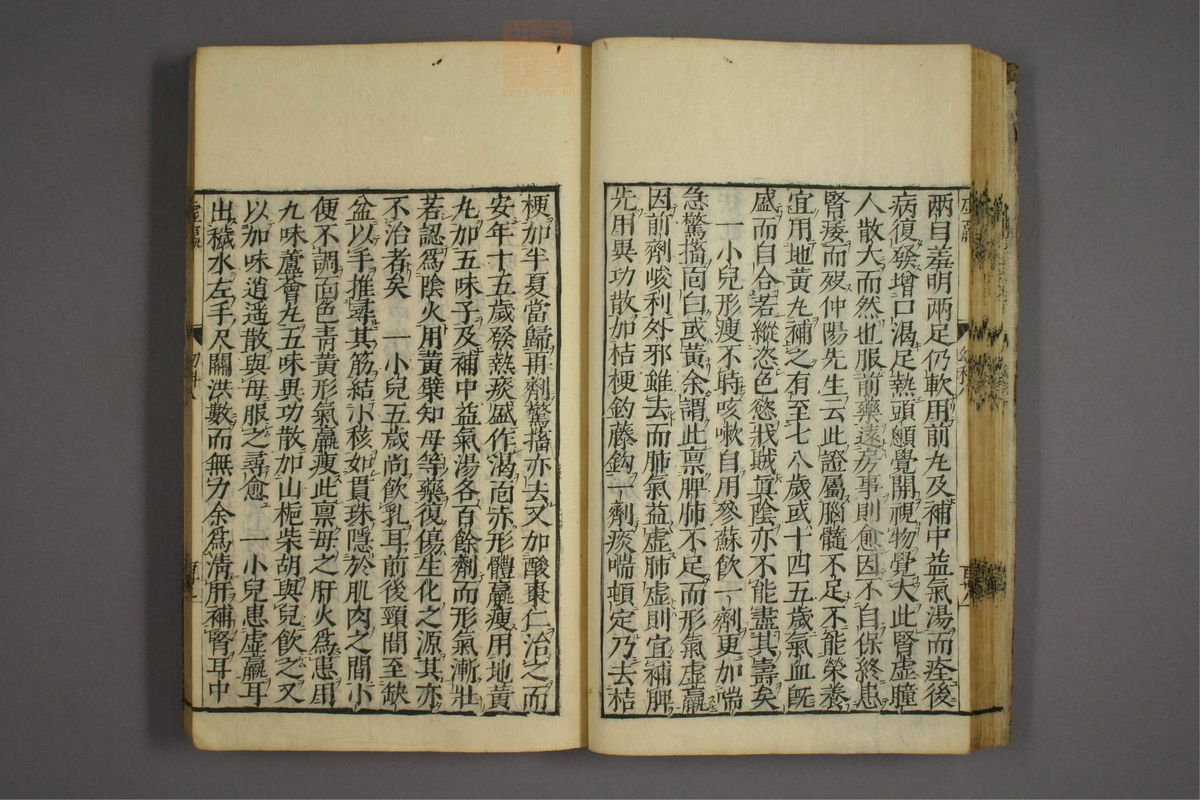 兩目羞明兩足仍軟用前丸及補中益氣湯而痊後
病復發增口渴足熱頭顱覺開視物覺大此腎虛瞳
人散大而然也服前藥遠房事則愈因不自保終患
腎痿而歿仲陽先生云此證屬腦髓不足不能榮養
宜用地黃丸補之有至七八歲或十四五歲氣血既
盛而自合若縱恣色慾戕賊真陰亦不能盡其壽矣
一小兒形瘦不時咳嗽自用參蘇飲一劑更加喘
急驚搐面白或黃余謂此稟脾肺不足而形氣虛羸
因前劑峻利外邪雖去而肺氣益虛肺虛則宜補脾
先用異功散加桔梗鈎藤鈎一劑痰喘頓定乃去桔
梗加半夏當歸再劑驚搐亦去又加酸棗仁治之而
安年十五歲發熱痰盛作渴面赤形體羸瘦用地黃
丸加五味子及補中益氣湯各百餘劑而形氣漸壯
若認為陰火用黃蘗知母等藥復傷生化之源其亦
不治者矣 一小兒五歲尚飲乳耳前後頸間至缺
盆以手推尋其筋結小核如貫珠隱於肌肉之間小
便不調面色青黃形氣羸瘦此稟母之肝火為患用
九味蘆薈丸五味異功散加山梔柴胡與兒飲之又
以加味逍遥散與母服之尋愈 一小兒患虛羸耳
出穢水左手尺關洪數而無力余為清肝補腎耳中
虛羸